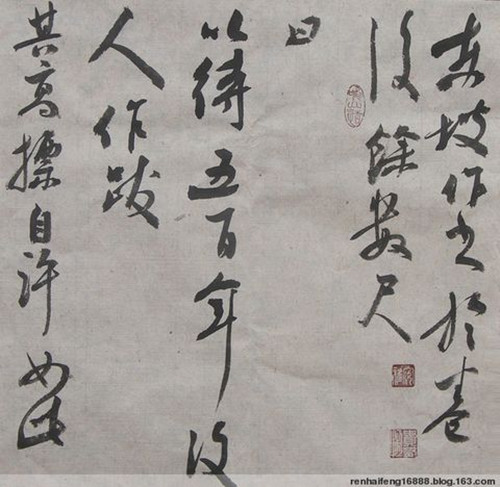 东坡作书于卷
后余数尺
曰
以待五百年后
人作跋
其高摽自许如此
renhaifeng16888.blog.163.com